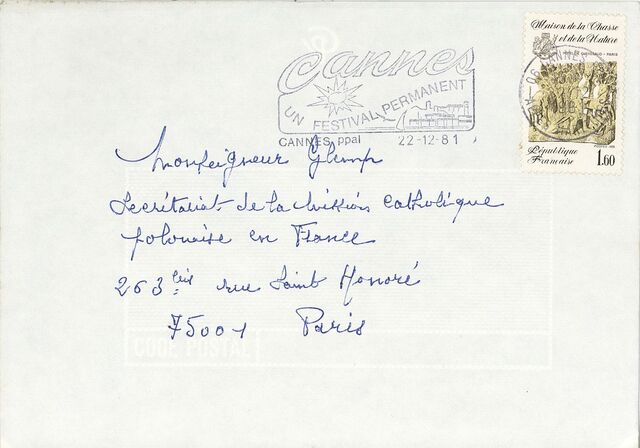 Maison de la Chasse
et de la Nature
Cannes
UN FESTIVAL PERMANENT
CANNES ppal 22-12-81
06 CANNES
République
Française 1.60
Monseigneur Glemp
Secrétariat de la Mission Catholique
polonaise en France
263 bis rue Saint Honoré
75001 Paris
CODE POSTAL